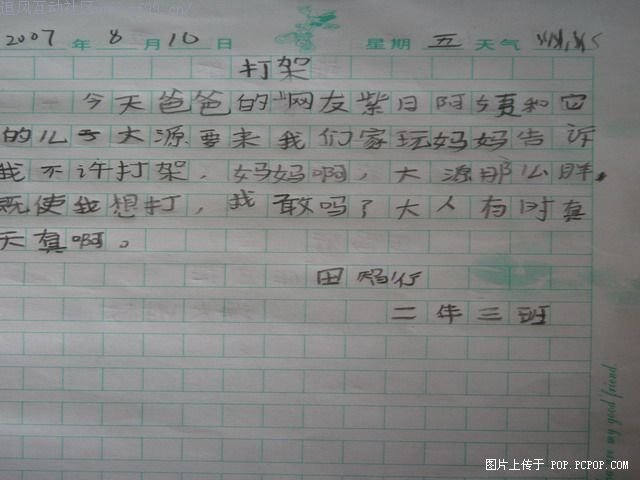 追风互动社区
2007 年 8 月 10 日 星期 五 天气
打架
今天爸爸的"网友紫日阿姨和它
的儿子大源要来我们家玩妈妈告诉
我不许打架，妈妈啊，大源那么胖，
既使我想打，我敢吗？大人有时真
天真啊。
田 行
二年三班
my good friend
图片上传于 POP.PCPOP.COM